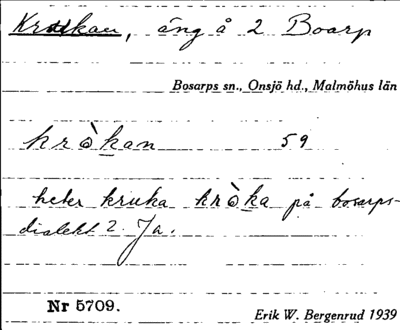 Krukan, äng å 2 Boarp
Bosarps sn., Onsjö hd., Malmöhus län
krò̱kan 59
heter kruka krò̱ka på bosarps-
dialekt? Ja.
Nr 5709.
Erik W. Bergenrud 1939